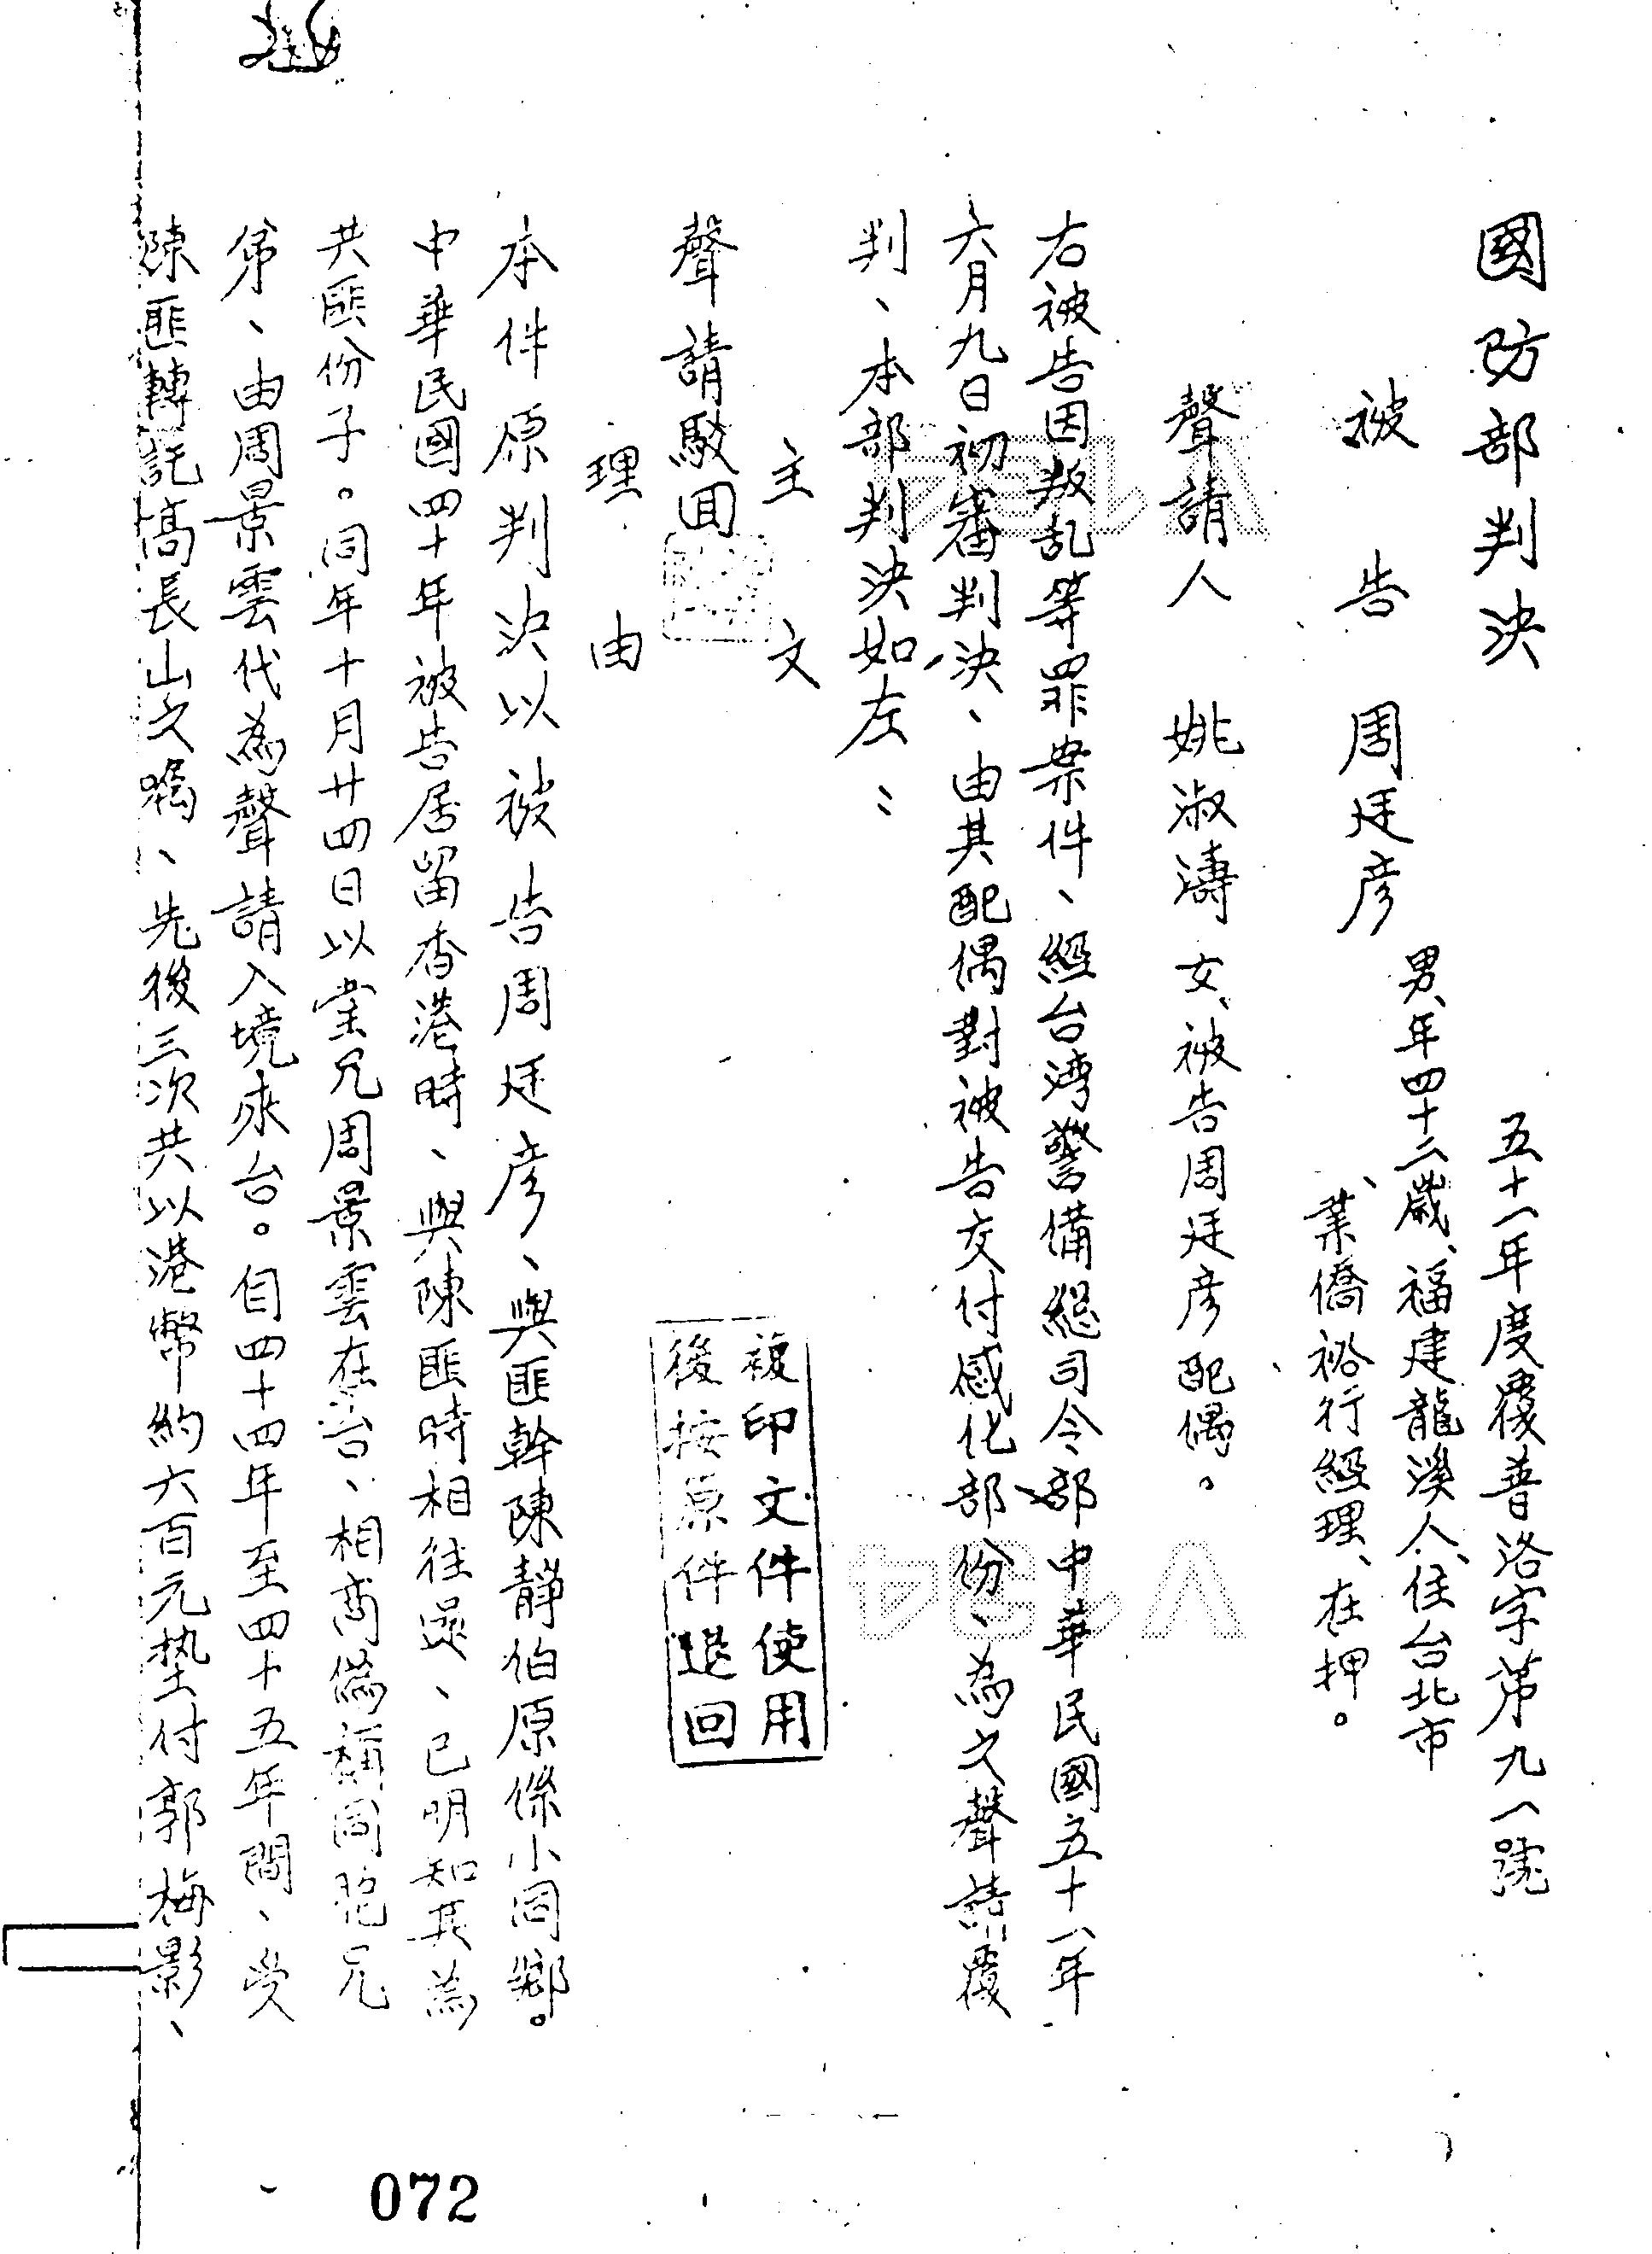 國防部判決
五十一年度覆普洛字第九一號
被告 周廷彥
男、年四十二歲、福建龍溪人、住台北市
、業僑裕行經理、在押。
聲請人 姚淑濤 女、被告周廷彥配偶。
右被告因叛乱等罪案件、經台湾警備總司令部中華民國五十一年
六月九日初審判決、由其配偶對被告交付感化部份、為之聲請覆
判、本部判決如左：
主文
聲請駁回
理由
本件原判決以被告周廷彥、與匪幹陳靜伯原係小同鄉。
中華民國四十年被告居留香港時、與陳匪時相往還、已明知其為
共匪份子。同年十月廿四日以堂兄周景雲在台、相商偽稱同胞兄
弟、由周景雲代為聲請入境來台。自四十四年至四十五年間、受
陳匪轉託高長山之囑、先後三次共以港幣約六百元墊付郭梅影、
複印文件使用
後按原件退回
V134
V134
072